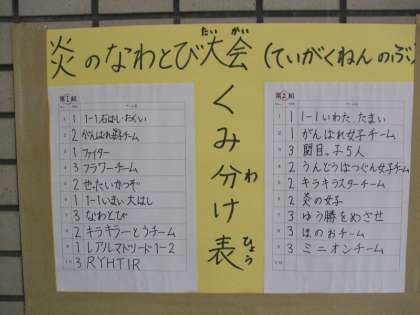 炎のなわとび大会(ていがくねんのぶ)
たいかい
くみ分け表
わ
ひょう
1 1-1石はい・たくい
2 がんばれ女子チーム
1 ファイター
3 フラワーチーム
2 ぜったいかつぞ
1 1-1いまい大はし
3 なわとび
2 キラキラーとうチーム
1 レアルマドリード1-2
3 RYHTIR
1 1-1いわた、たまい
1 がんばれ女子チーム
3 闘目。子5人
2 うんどうばつぐん女子チーム
2 キラキラスターチーム
2 炎の女子
3 ゆう勝をめざせ
3 ほのおチーム
3 ミニオンチーム